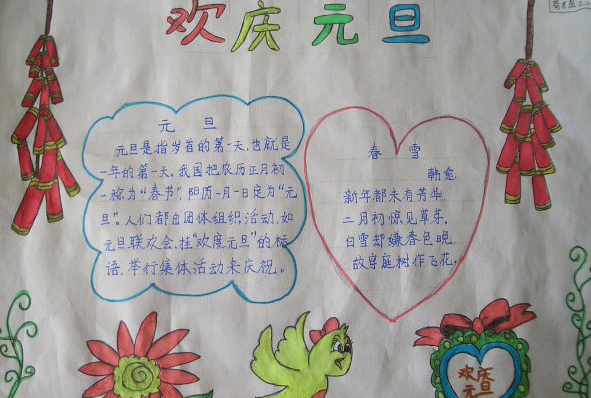 欢庆元旦
元 旦
元旦是指岁首的第一天,也就是
一年的第一天。我国把农历正月初
一称为“春节”,阳历一月一日定为“元
旦”。人们都由团体组织活动,如
元旦联欢会、挂“欢度元旦”的标
语,举行集体活动来庆祝。
春 雪
韩愈
新年都未有芳华,
二月初惊见草芽。
白雪却嫌春色晚,
故穿庭树作飞花。
欢庆
元旦